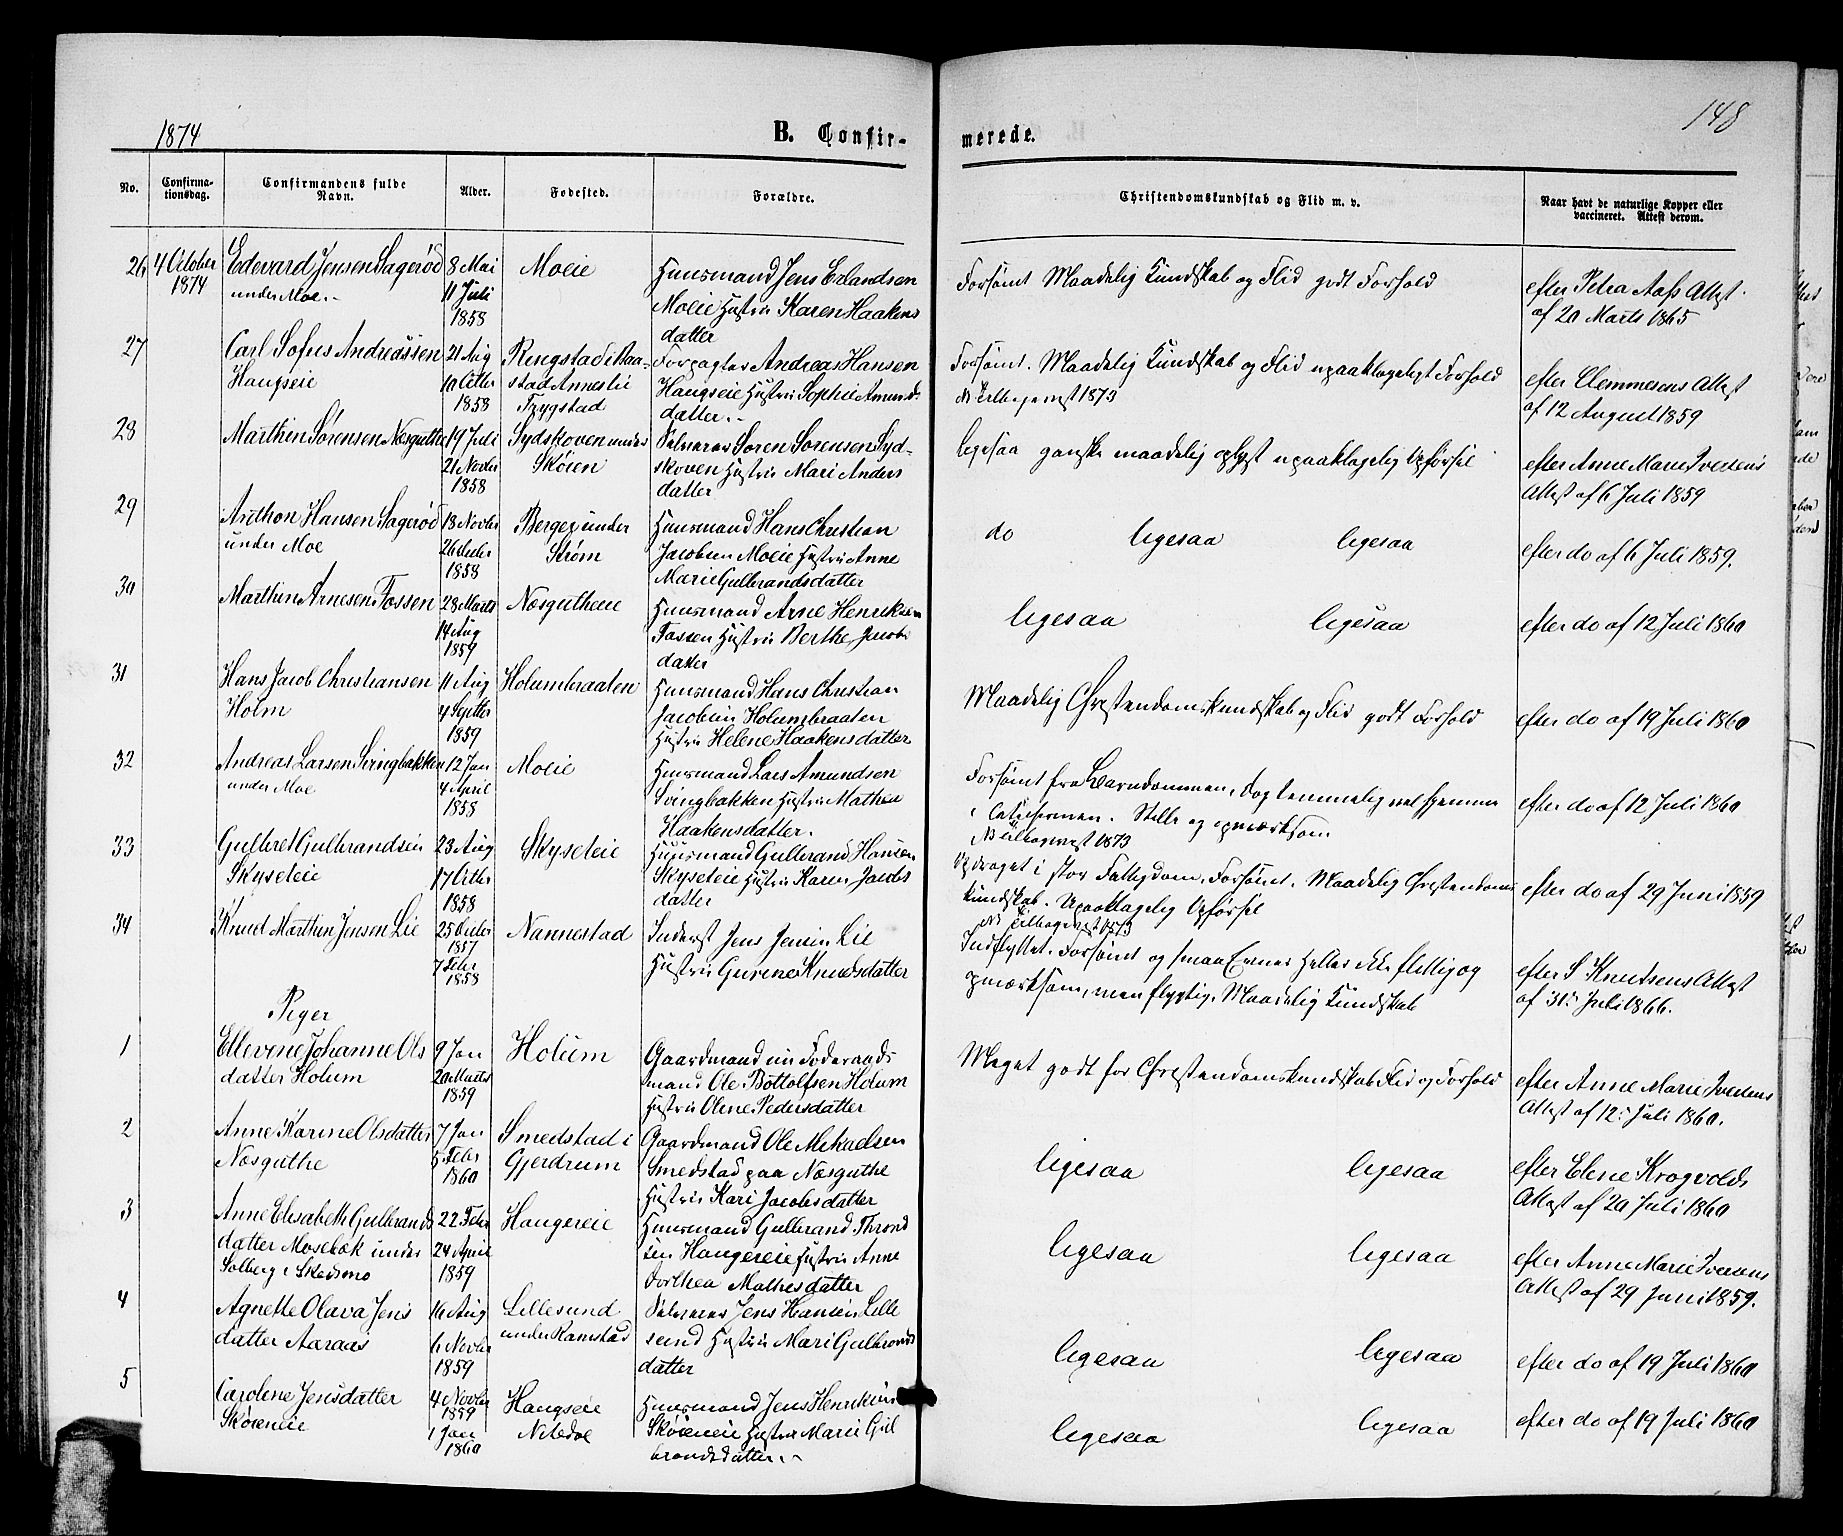 148
1874
B. Confir-
merede.
No.
Confirma-
tionsdag.
Confirmandens fulde
Navn.
Alder.
Fødested.
Forældre.
Christendomskundskab og Flid m. v.
Naar havt de naturlige Kopper eller
vaccineret. Attest derom.
26
4 October
1874
Edevard Jensen Sagerød
under Moe.
8 Mai
11 Juli
1858
Moeie
Huusmand Jens Erlandsen
Moeie Hustru Karen Haakens
datter
Forsømt Maadelig Kundskab og Flid godt Forhold
efter Petra Aass Attest
af 20 Marts 1865
27
Carl Sofus Andreassen
Haugseie
21 Aug
10 Octbr
1858
Ringstad i Baa-
stad Annexlie
Trygstad
Forpagter Andreas Hansen
Haugseie Hustru Sophie Amunds
datter.
Forsømt. Maadelig Kundskab og Flid upaaklageligt Forhold
NB tilbagevist 1873
efter Clemmesens Attest
af 12 August 1859
28
Marthin Sørensen Næsguthe
19 Juli
21 Novbr
1858
Sydskoven under
Skøien
Selveier Søren Sørensen Syd-
skoven Hustru Mari Anders
datter
ligesaa ganske maadelig oplyst upaaklagelig Opførsel
efter Anne Marie Ivedens
Attest af 6 Juli 1859
29
Anthon Hansen Sagerød
under Moe
18 Novbr
26 Decbr
1858
Berger under
Strøm
Huusmand Hans Christian
Jacobsen Moeie Hustru Anne
Marie Gulbrandsdatter
do ligesaa ligesaa
efter do af 6 Juli 1859.
30
Marthin Arnesen Fossen
28 Marts
14 Aug
1859
Næsgutheie
Huusmand Arne Henriksen
Fossen Hustru Berthe Jacobs
datter
ligesaa ligesaa
efter do af 12 Juli 1860
31
Hans Jacob Christiansen
Holm
11 Aug
4 Septbr
1859
Holumbraaten
Huusmand Hans Christian
Jacobsen Holumbraaten
Hustru Helene Haakensdatter
Maadelig Christendomskundskab og Flid godt Forhold
efter do af 19 Juli 1860
32
Andreas Larsen Svingbakken
under Moe
12 Jan
4 April
1858
Moeie
Huusmand Lars Amundsen
Svingbakken Hustru Mathea
Haakensdatter.
Forsømt fra Barndommen, dog temmelig vel hjemme
i Catechismen. Stille og opmærksom
NB tilbagevist 1873
efter do af 12 Juli 1860
33
Gulbret Gulbrandsen
Skyseteie
23 Aug
17 Octbr
1858
Skyseteie
Huusmand Gulbrand Hansen
Skyseteie Hustru Karen Jacobs
datter
Opdraget i stor Fattigdom. Forsømt. Maadelig Christendoms
kundskab. Upaaklagelig Opførsel
NB tilbagevist 1873
efter do af 29 Juni 1859
34
Knud Marthin Jensen Lie
25 Decbr
1857
7 Febr
1858
Nannestad
Inderst Jens Jensen Lie
Hustru Gurine Knudsdatter
Indflyttet. Forsømt og smaa Evner heller ikke flittig og
opmærksom, men flygtig. Maadelig Kundskab
efter S Knudsens Attest
af 31te Juli 1866.
Piger
1
Ellevine Johanne Ols
datter Holum
9 Jan
20 Marts
1859
Holum
Gaardmand nu Føderaads
mand Ole Bottolfsen Holum
Hustru Olene Pedersdatter
Meget godt for Christendomskundskab Flid og Forhold
efter Anne Marie Ivedens
Attest af 12te Juli 1860.
2
Anne Karine Olsdatter
Næsguthe
7 Jan
5 Febr
1860
Smedstad i
Gjerdrum
Gaardmand Ole Mikaelsen
Smedstad paa Næsguthe
Hustru Kari Jacobsdatter
ligesaa ligesaa
efter Elene Krogvolds
Attest af 20 Juli 1860
3
Anne Elisabeth Gulbrands
datter Mosebæk under
Solberg i Skedsmo
22 Febr
24 April
1859
Haugereie
Huusmand Gulbrand Thrond
sen Haugereie Hustru Anne
Dorthea Mathisdatter
ligesaa ligesaa
efter Anne Marie Ivedens
Attest af 29 Juni 1859.
4
Agnette Olava Jens
datter Aaraas
16 Aug
6 Novbr
1859
Lillesund
under Ramstad
Selveier Jens Hansen Lille
sund Hustru Mari Gulbrands
datter
ligesaa ligesaa
efter do af 19 Juli 1860
5
Caroline Jensdatter
Skøieneie
4 Novbr
1859
1 Jan
1860
Haugseie
Nitedøl
Huusmand Jens Henriksen
Skøieneie Hustru Mari Gul
brandsdatter.
ligesaa ligesaa
efter do af 19 Juli 1860